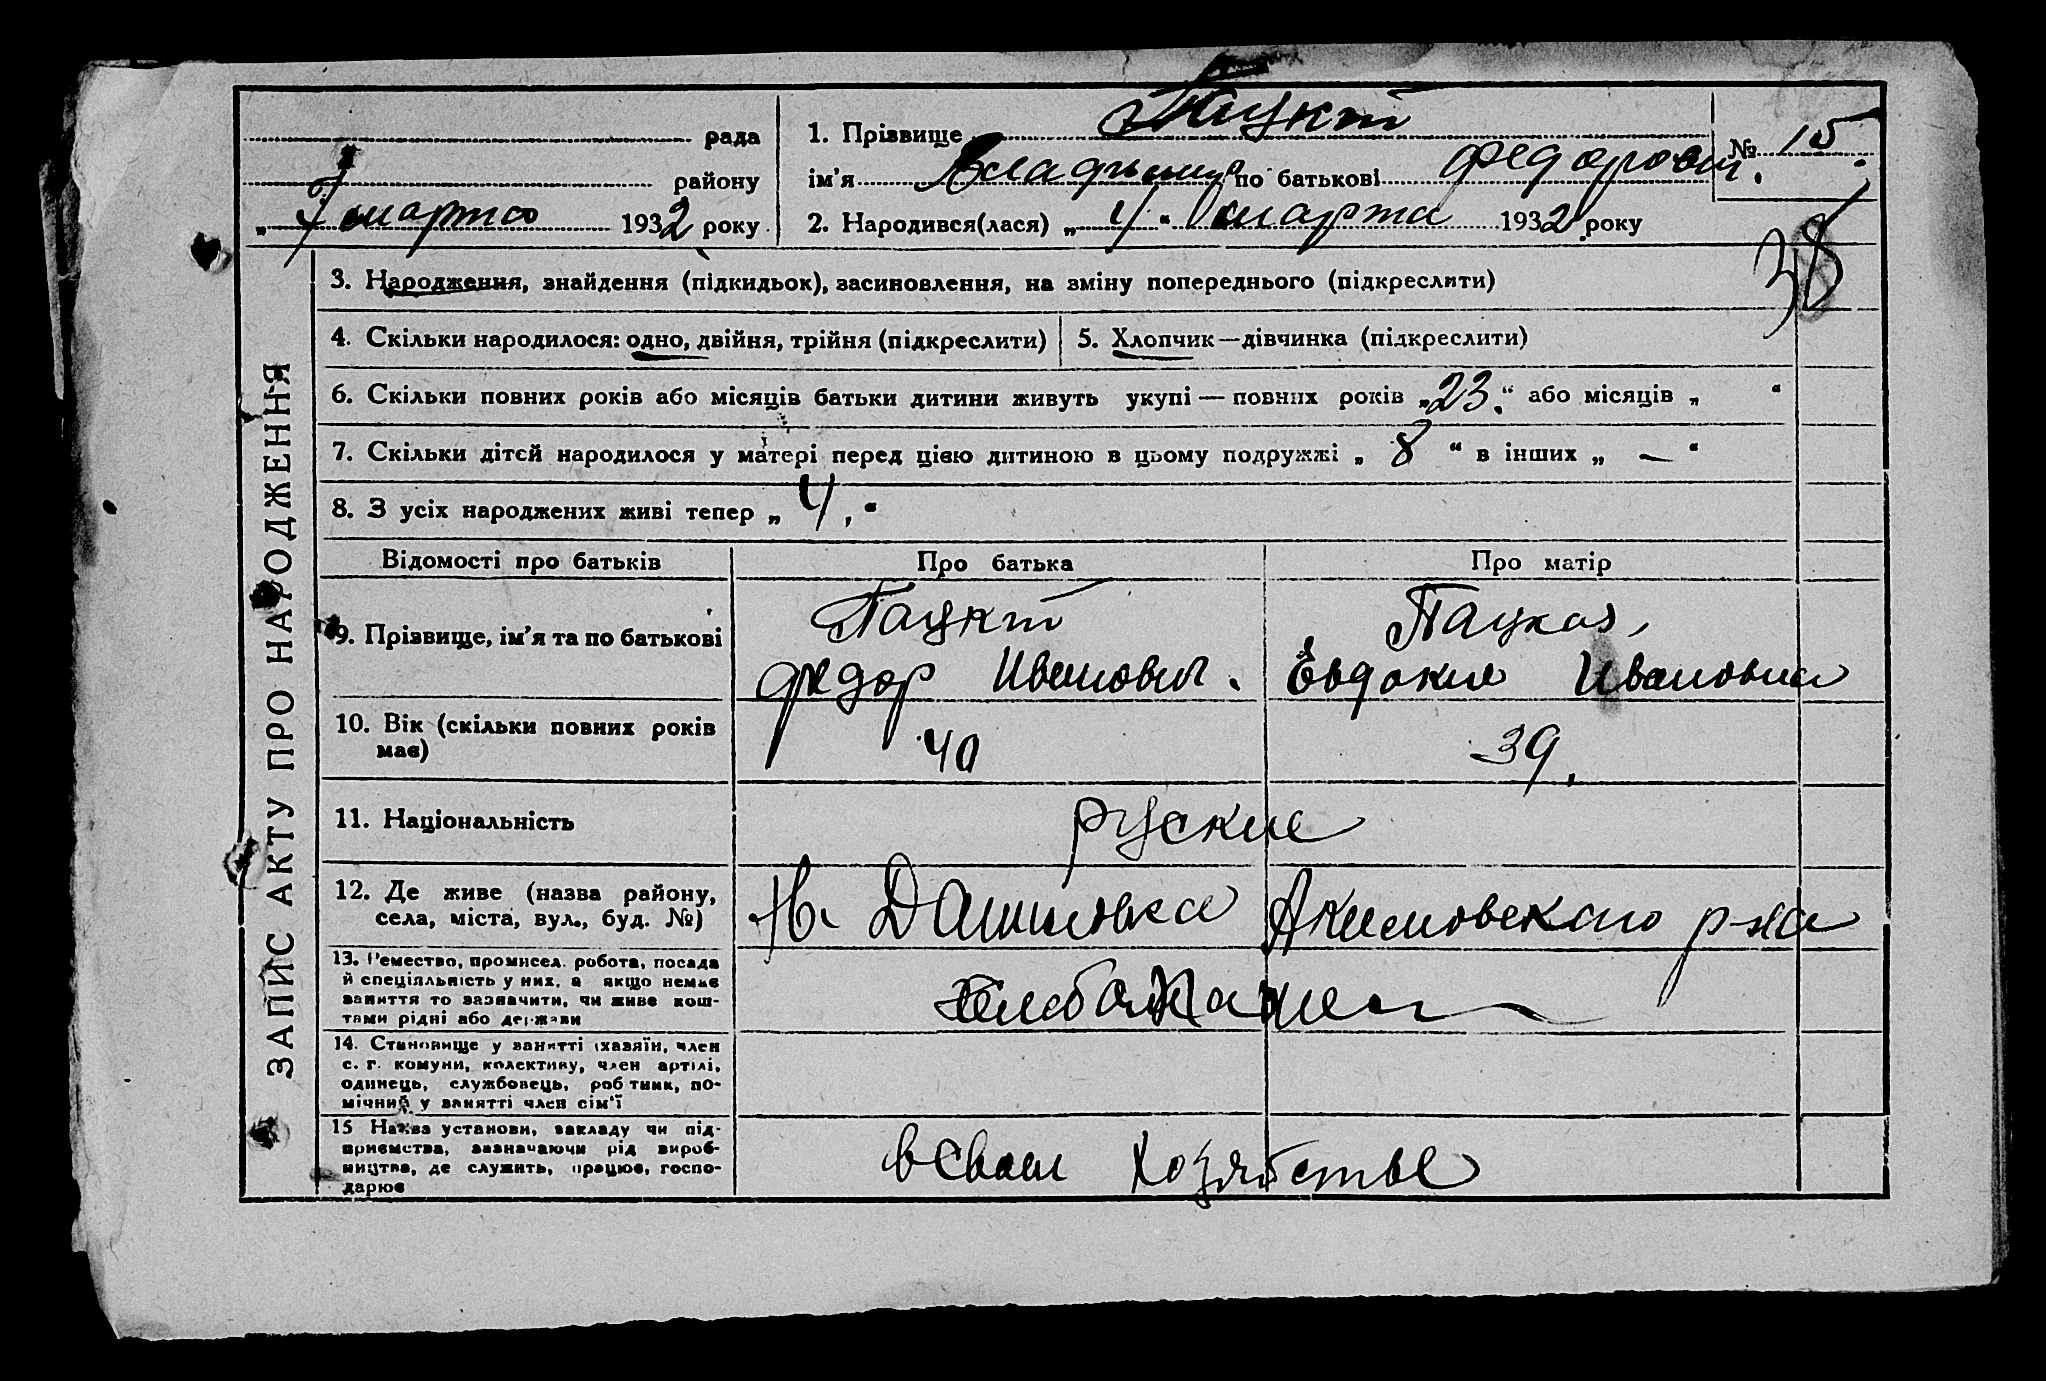 рада
району
„ 7 марта 1932 року
1. Прізвище Пацкт
№ 15.
ім'я Владимир по батькові Федорович.
2. Народився(лася) „ 4 “ марта 1932 року
38
ЗАПИС АКТУ ПРО НАРОДЖЕННЯ
3. Народження, знайдення (підкидьок), засиновлення, на зміну попереднього (підкреслити)
4. Скільки народилося: одно, двійня, трійня (підкреслити)
5. Хлопчик—дівчинка (підкреслити)
6. Скільки повних років або місяців батьки дитини живуть укупі — повних років „ 23. “ або місяців „ “
7. Скільки дітей народилося у матері перед цією дитиною в цьому подружжі „ 8 “ в інших „ — “
8. З усіх народжених живі тепер „ 4, “
Відомості про батьків
Про батька
Про матір
9. Прізвище, ім'я та по батькові
Пацкт
Федор Иванович.
Пацкая,
Евдокия Ивановна
10. Вік (скільки повних років
має)
40
39.
11. Національність
руские
12. Де живе (назва району,
села, міста, вул., буд. №)
Н. Даниловка Акимовскаго р-на
13. Ремество, промисел, робота, посада
й спеціяльність у них, а якщо немає
заняття то зазначити, чи живе кош-
тами рідні або держави
Хлебопашец
14. Становище у занятті (хазяїн, член
с. г. комуни, колективу, член артілі,
одинець, службовець, робітник, по-
мічний у занятті член сім'ї
15 Назва установи, закладу чи під-
приємства, зазначаючи рід вироб-
ництва, де служить, працює, госпо-
дарює
в своем хозяйстве